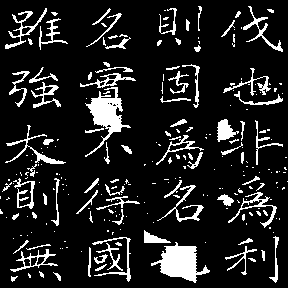 伐也非爲利
則固爲名
名實不得國
雖強大則無